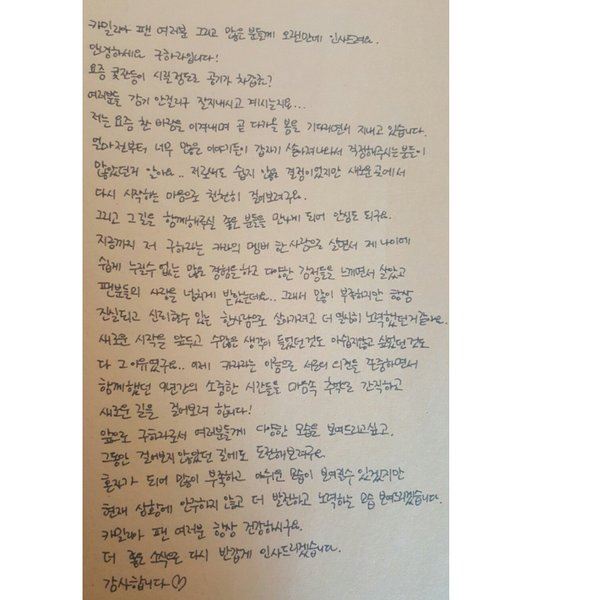 카밀리아 팬 여러분 그리고 많은 분들께 오랜만에 인사드려요.
안녕하세요 구하라입니다!
요즘 콧잔등이 시릴정도로 공기가 차갑죠?
여러분들 감기 안걸리구 잘지내시고 계시는지요...
저는 요즘 찬 바람을 이겨내며 곧 다가올 봄을 기다리면서 지내고 있습니다.
얼마전부터 너무 많은 이야기들이 갑자기 쏟아져나와서 걱정해주시는 분들이
많았던거 알아요.. 저로써도 쉽지 않은 결정이었지만 새로운 곳에서
다시 시작하는 마음으로 천천히 걸어보려구요.
그리고 그 길을 함께해주실 좋은 분들을 만나게 되어 안심도 되구요.
지금까지 저 구하라는 카라의 멤버 한 사람으로 살면서 제 나이에
쉽게 누릴수 없는 많은 경험을하고 다양한 감정들을 느끼면서 살았고
팬분들의 사랑을 넘치게 받았는데요.. 그래서 많이 부족하지만 항상
진실되고 신뢰할수 있는 한사람으로 살아가려고 더 열심히 노력했던거 같아요.
새로운 시작을 앞두고 수많은 생각이 들었던것도 아쉽지않고 싶었던 것도
다 그 이유였구요.. 이제 카라라는 이름으로 서로의 의견을 존중하면서
함께했던 9년간의 소중한 시간들을 마음속 추억으로 간직하고
새로운 길을 걸어보려 합니다!
앞으로 구하라로서 여러분들께 다양한 모습을 보여드리고싶고.
그동안 걸어보지 않았던 길에도 도전해보려구요.
혼자가 되어 많이 부족하고 아쉬운 모습이 보여질수 있겠지만
현재 상황에 안주하지 않고 더 발전하고 노력하는 모습 보여드리겠습니다.
카밀리아 팬 여러분 항상 건강하시구요.
더 좋은 소식으로 다시 반갑게 인사드리겠습니다.
감사합니다♡